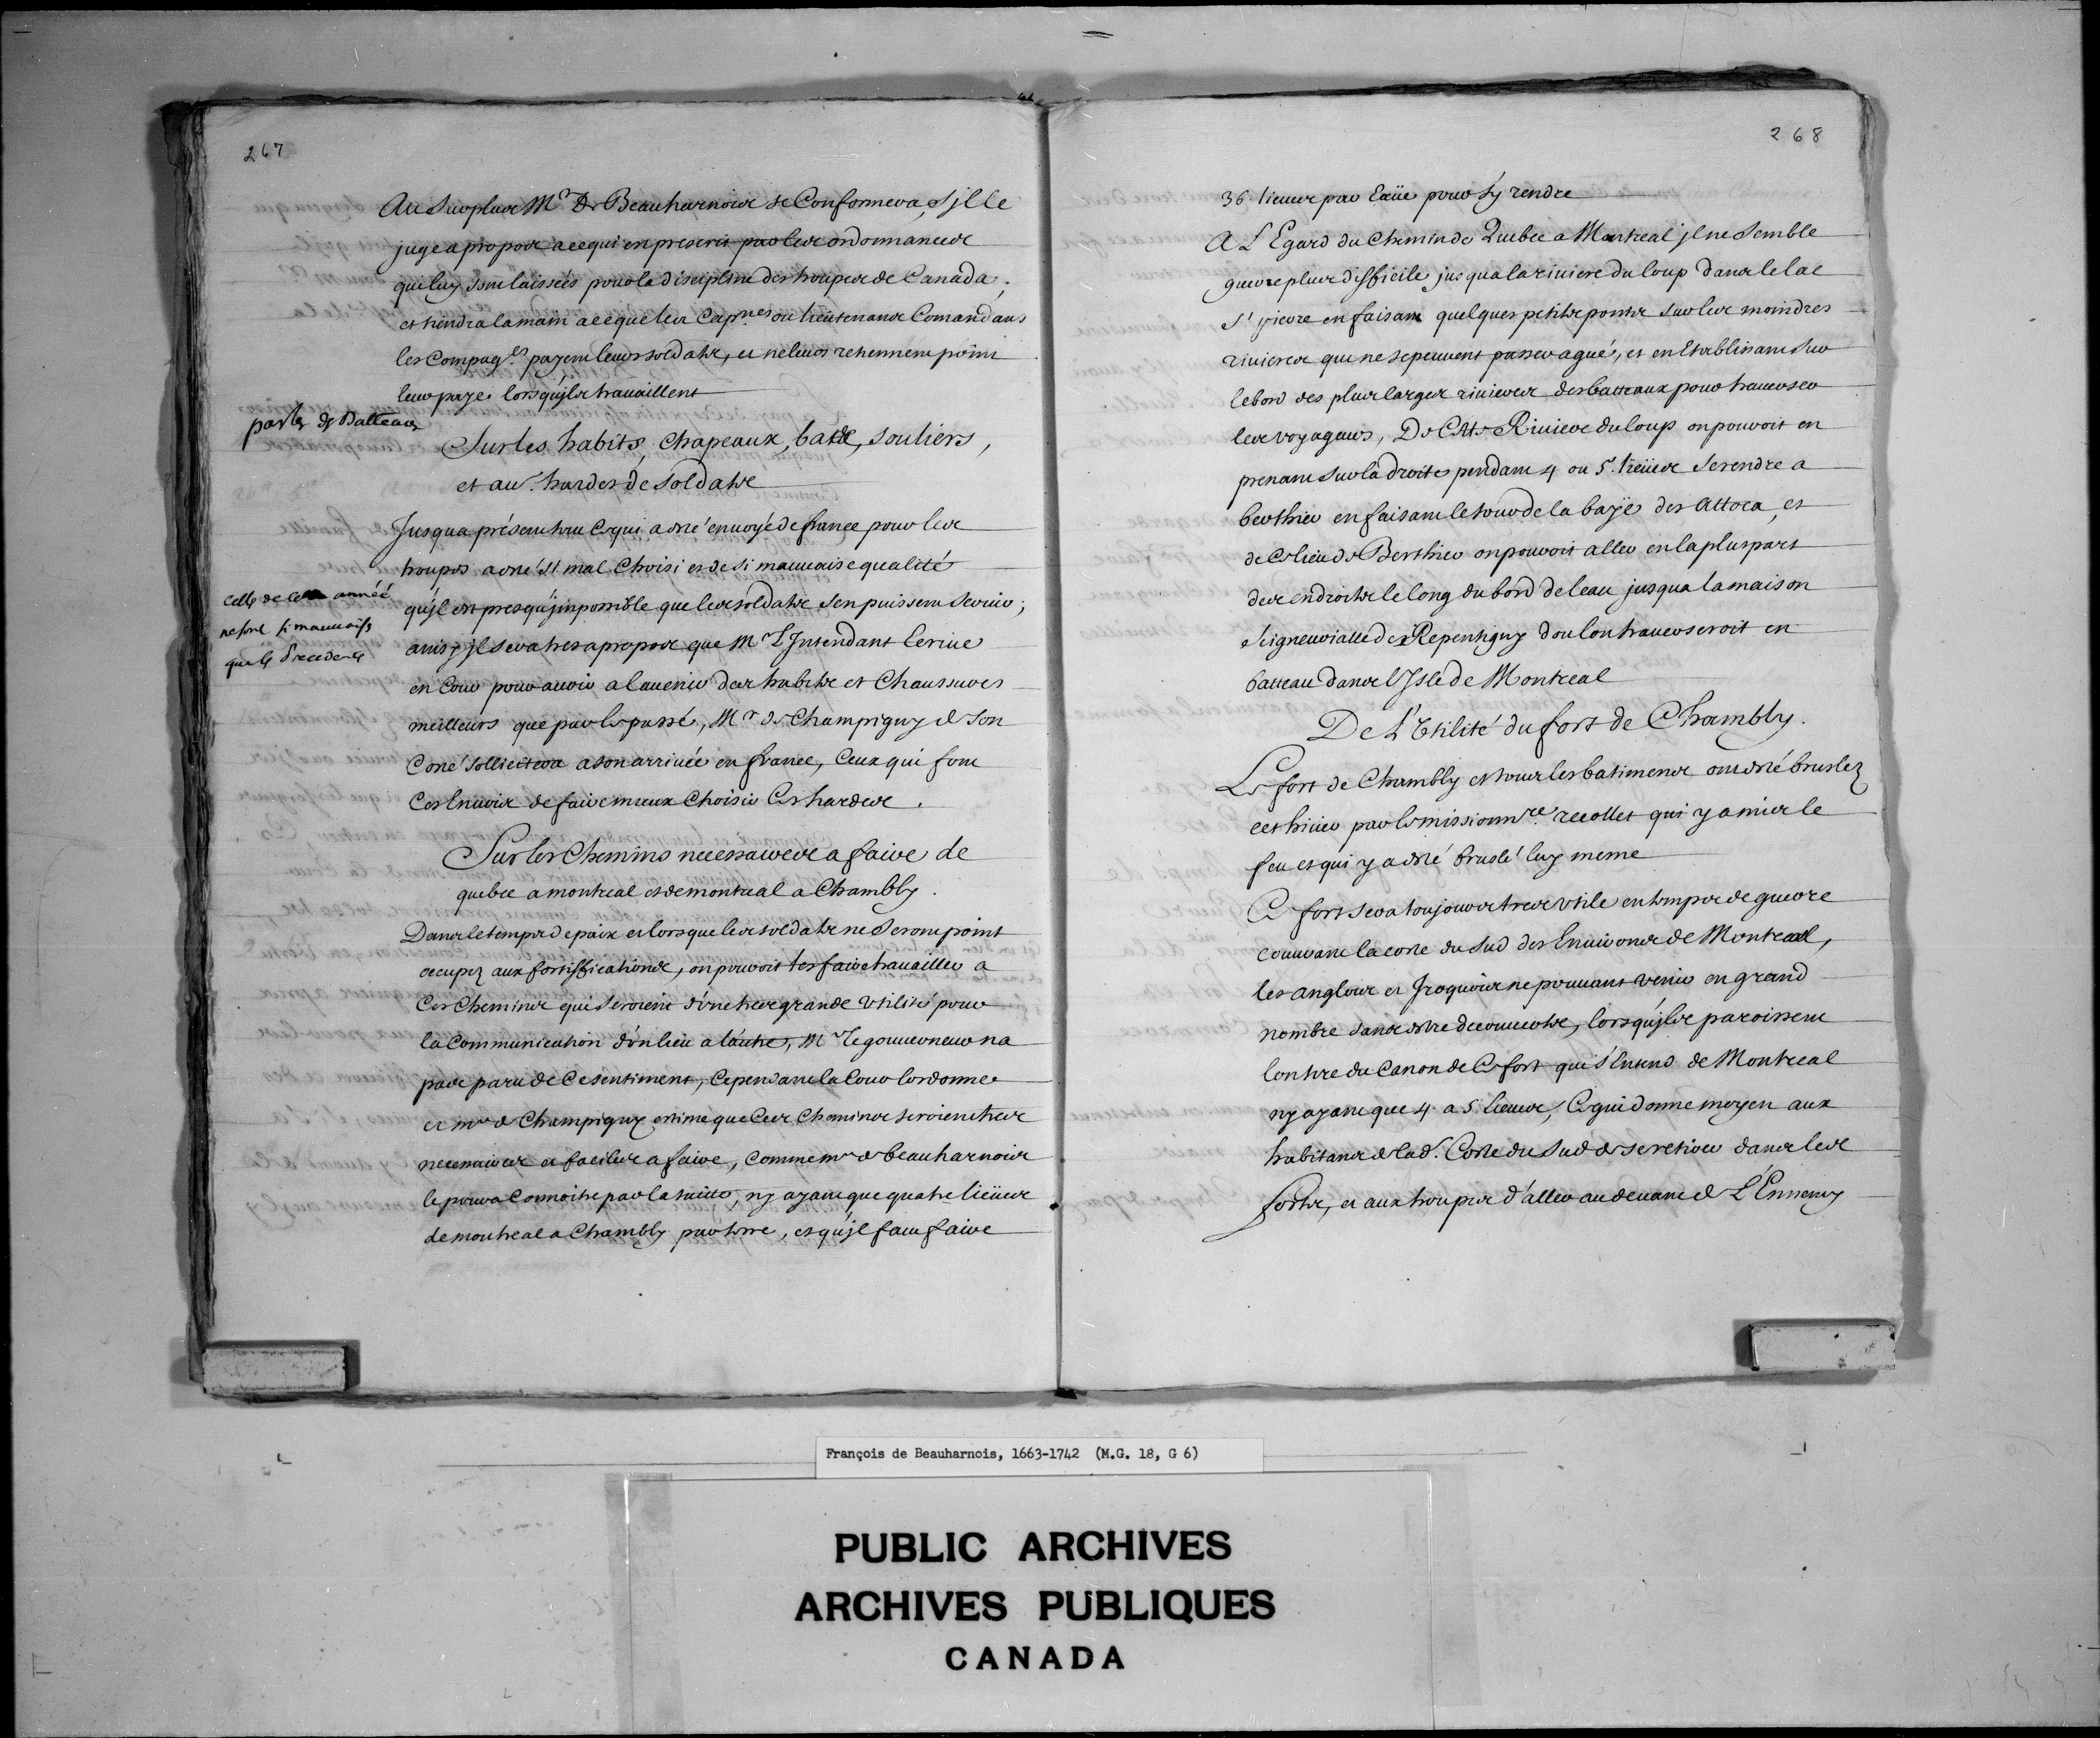 267
Au Surplus Mr De Beauharnois se Conformera, s'jl le
juge a propos a ce qui en prescrit par les ordonnances
qui luy sont laissées pour la discipline des troupes de Canada,
et tiendra la main a ce que les Capnes ou lieutenans Comandans
les Compagies payent leurs soldats, et ne leurs retiennent point
leur paye lorsqu'jls travaillent
parler de Batteaux
Sur les habits, chapeaux, bas, souliers,
et au. hardes de soldats
Jusqua présent tout ce qui a esté envoyé de france pour les
troupes a esté si mal Choisi et de si mauvaise qualité
qu'jl est presqu'jmpossible que les soldats s'en puissent servir;
celles de cette année
ne sont si mauvaises
que les precedentes
ainsy jl sera tres a propos que Mr L'Jntendant Ecrive
en Cour pour avoir a lavenir des habits et Chaussures
meilleurs que par le passé, Mr de Champigny de son
Costé sollicitera a son arrivée en france, Ceux qui font
Ces Envois de faire mieux Choisir Ces hardes.
Sur les Chemins necessaires a faire de
quebec a montreal et de montreal a Chambly.
Dans le temps de paix et lorsque les soldats ne seront point
occupez aux fortiffications, on pouroit les faire travailler a
Ces Chemins qui seroient d'une tres grande Utilité pour
la Communication d'un lieu a lautre, Mr le gouverneur na
pas paru de Ce sentiment, Cependant la Cour lordonne
et mr de Champigny estime que Ces Chemins seroient tres
necessaires et faciles a faire, comme mr de beauharnois
le poura Connoitre par la suitte, ny ayant que quatre lieües
de montreal a Chambly par terre, et qu'jl faut faire
268
36 lieues par Eaüe pour s'y rendre
A L'Egard du Chemin de Quebec a Montreal jl ne semble
guerre plus difficile jusqua la riviere du loup dans le lac
St pierre en faisant quelques petits ponts sur les moindres
rivieres qui ne se peuvent passer a gué, et en Etablissant sur
le bord des plus larges rivieres des batteaux pour traverser
les voyageurs, De Cette Riviere du loup on pouroit en
prenant sur la droite pendant 4 ou 5 lieües se rendre a
berthier en faisant le tour de la baye des attoca, et
de Ce lieu de Berthier on pouroit aller en la pluspart
des endroits le long du bord de leau jusqua la maison
Seigneurialle de Repentigny dou lon traverseroit en
batteau dans l'Jsle de Montreal
De L'Utilité du fort de Chambly.
Le fort de Chambly et tous les batimens ont esté bruslez
cet hiver par le missionnre recollet qui y a mis le
feu et qui y a esté bruslé luy meme
Ce fort sera toujours tres Utile en temps de guerre
couvrant la coste du sud des Environs de Montreal,
les anglois et Jroquois ne pouvant venir en grand
nombre sans estre decouverts, lorsqu'jls paroissent
lon tire du Canon de Ce fort qui s'Entend de Montreal
ny ayant que 4 a 5 lieues, Ce qui donne moyen aux
habitans de lad. Coste du sud de se retirer dans les
forts, et aux troupes d'aller au devant de L'Ennemy
François de Beauharnois, 1663-1742 (M.G. 18, G 6)
PUBLIC ARCHIVES
ARCHIVES PUBLIQUES
CANADA